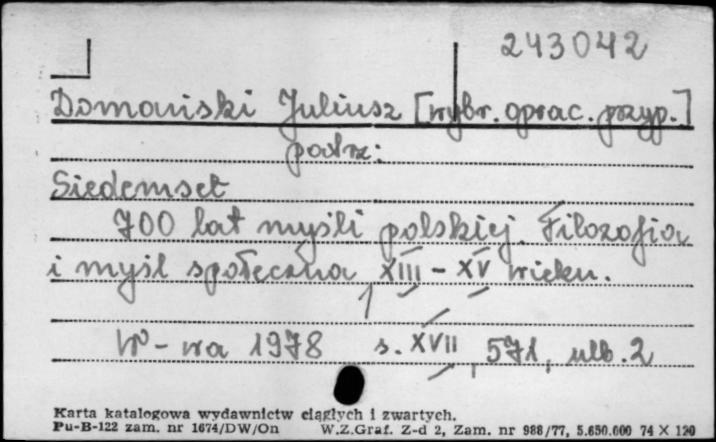 243042
Domański Juliusz [wybr. oprac. przyp.]
podrz:
Siedemset
700 lat myśli polskiej. Filozofia
i myśl społeczna XIII - XV wieku.
W-wa 1978 s. XVII, 571, nlb. 2
Karta katalogowa wydawnictw ciągłych i zwartych.
Pu-B-122 zam. nr 1674/DW/On W.Z.Graf. Z-d 2, Zam. nr 988/77, 5.650.000 74 X 120